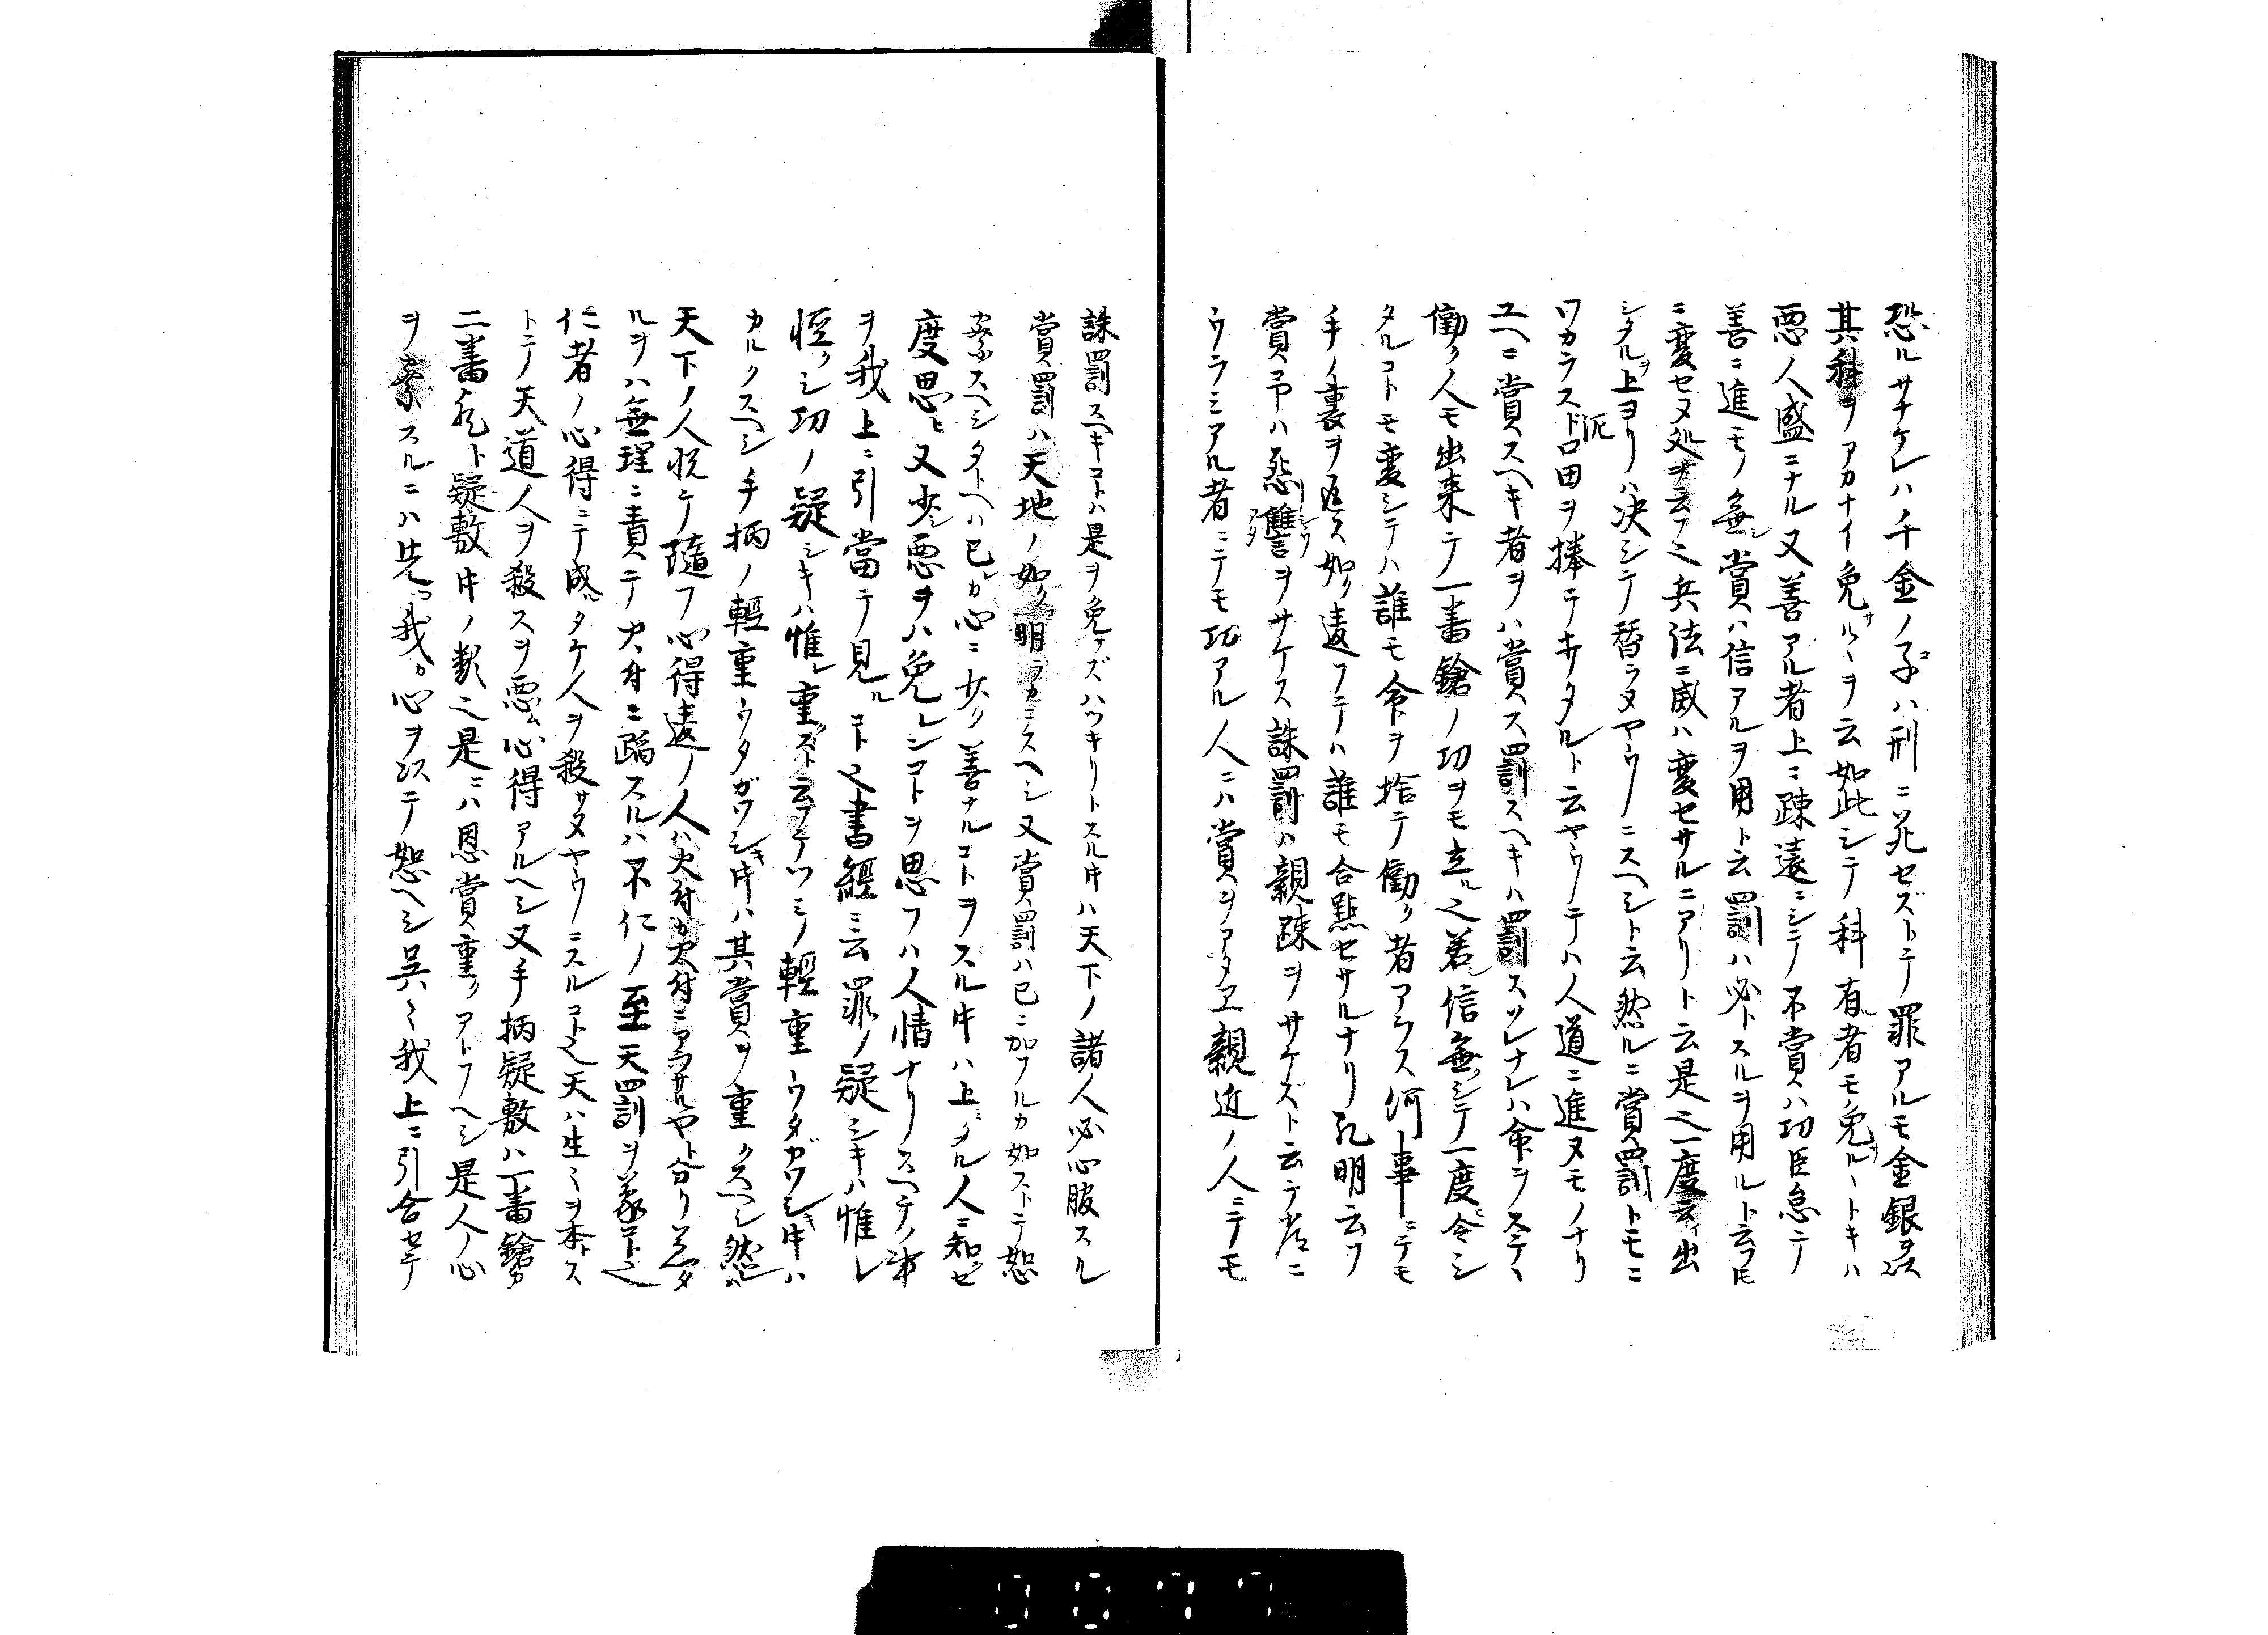 恐ルサナケレハ千金ノ子ハ刑ニ死セズトテ罪アルモ金銀ヲ以
其科ヲアカナイ免ルヽヲ云如此シテ科有者モ免ルヽトキハ
悪人盛ニナル又善アル者上ニ疎遠ニシテ不賞ハ功臣怠テ
善ニ進モノ無シ賞ハ信アルヲ用ト云罰ハ必トスルヲ用ルト云フ𪜈
ニ変セヌ処ヲ云フ之兵法ニ威ハ変セサルニアリト云是之一度云イ出
シタルヲ上ヨリハ決シテ替ラヌヤウニスヘシト云然ルニ賞罰トモニ
ワカラスドロ田ヲ捧ニテキリタルト云ヤウテハ人道ニ進ヌモノナリ
ユヘニ賞スヘキ者ヲハ賞ス罰スヘキハ罰スソレナレハ命ヲステヽ
働ク人モ出来テ一番鎗ノ功ヲモ立ル之若シ信無シテ一度令シ
タルコトモ変シテハ誰モ命ヲ捨テ働ク者アラス何事ニテモ
手ノ裏ヲ返ス如ク違フテハ誰モ合點セサルナリ孔明云ク
賞ヲ予ハ怨讐ヲサケス誅罰ハ親疎ヲサケズト云テ常ニ
ウラミアル者ニテモ功アル人ニハ賞ヲアタヱ親近ノ人ニテモ
誅罰スヘキコトハ是ヲ免サズハツキリトスル片ハ天下ノ諸人必心腹スル
賞罰ハ天地ノ如ク明ラカニスヘシ又賞罰ハ已ニ加フルカ如ストテ恕
察スヘシタトヘハ已レカ心ニ少ク善ナルコトヲスル片ハ上ミタル人ニ知ゼ
度思ヒ又少シ悪ヲハ免レンコトヲ思フハ人情ナリスヘテノ事
ヲ我上ニ引當テ見ルコト之書經ニ云罪ノ疑シキハ惟レ
恒クシ功ノ疑シキハ惟レ重ズト云フテツミノ輕重ウタガワシキ片ハ
カルクスヘシ手柄ノ輕重ウタガワシキ片ハ其賞ヲ重クスヘシ然レハ
天下ノ人悦テ隨フ心得違ノ人ハ火付カ火付ニアラサルヤト分リ兼タ
ルヲハ無理ニ責テ火付ニ蹈スルハ不仁ノ至天罰ヲ蒙コト之
仁者ノ心得ニテ成ルタケ人ヲ殺サヌヤウニスルコト之天ハ生ミヲ本トス
トテ天道人ヲ殺スヲ悪ム心得アルヘシ又手柄疑敷ハ一番鎗カ
二番鎗ト疑敷片ノ類之是ニハ恩賞重クアトフヘシ是人ノ心
ヲ察スルニハ先ツ我カ心ヲ以テ恕ヘシ呉々我上ニ引合セテ